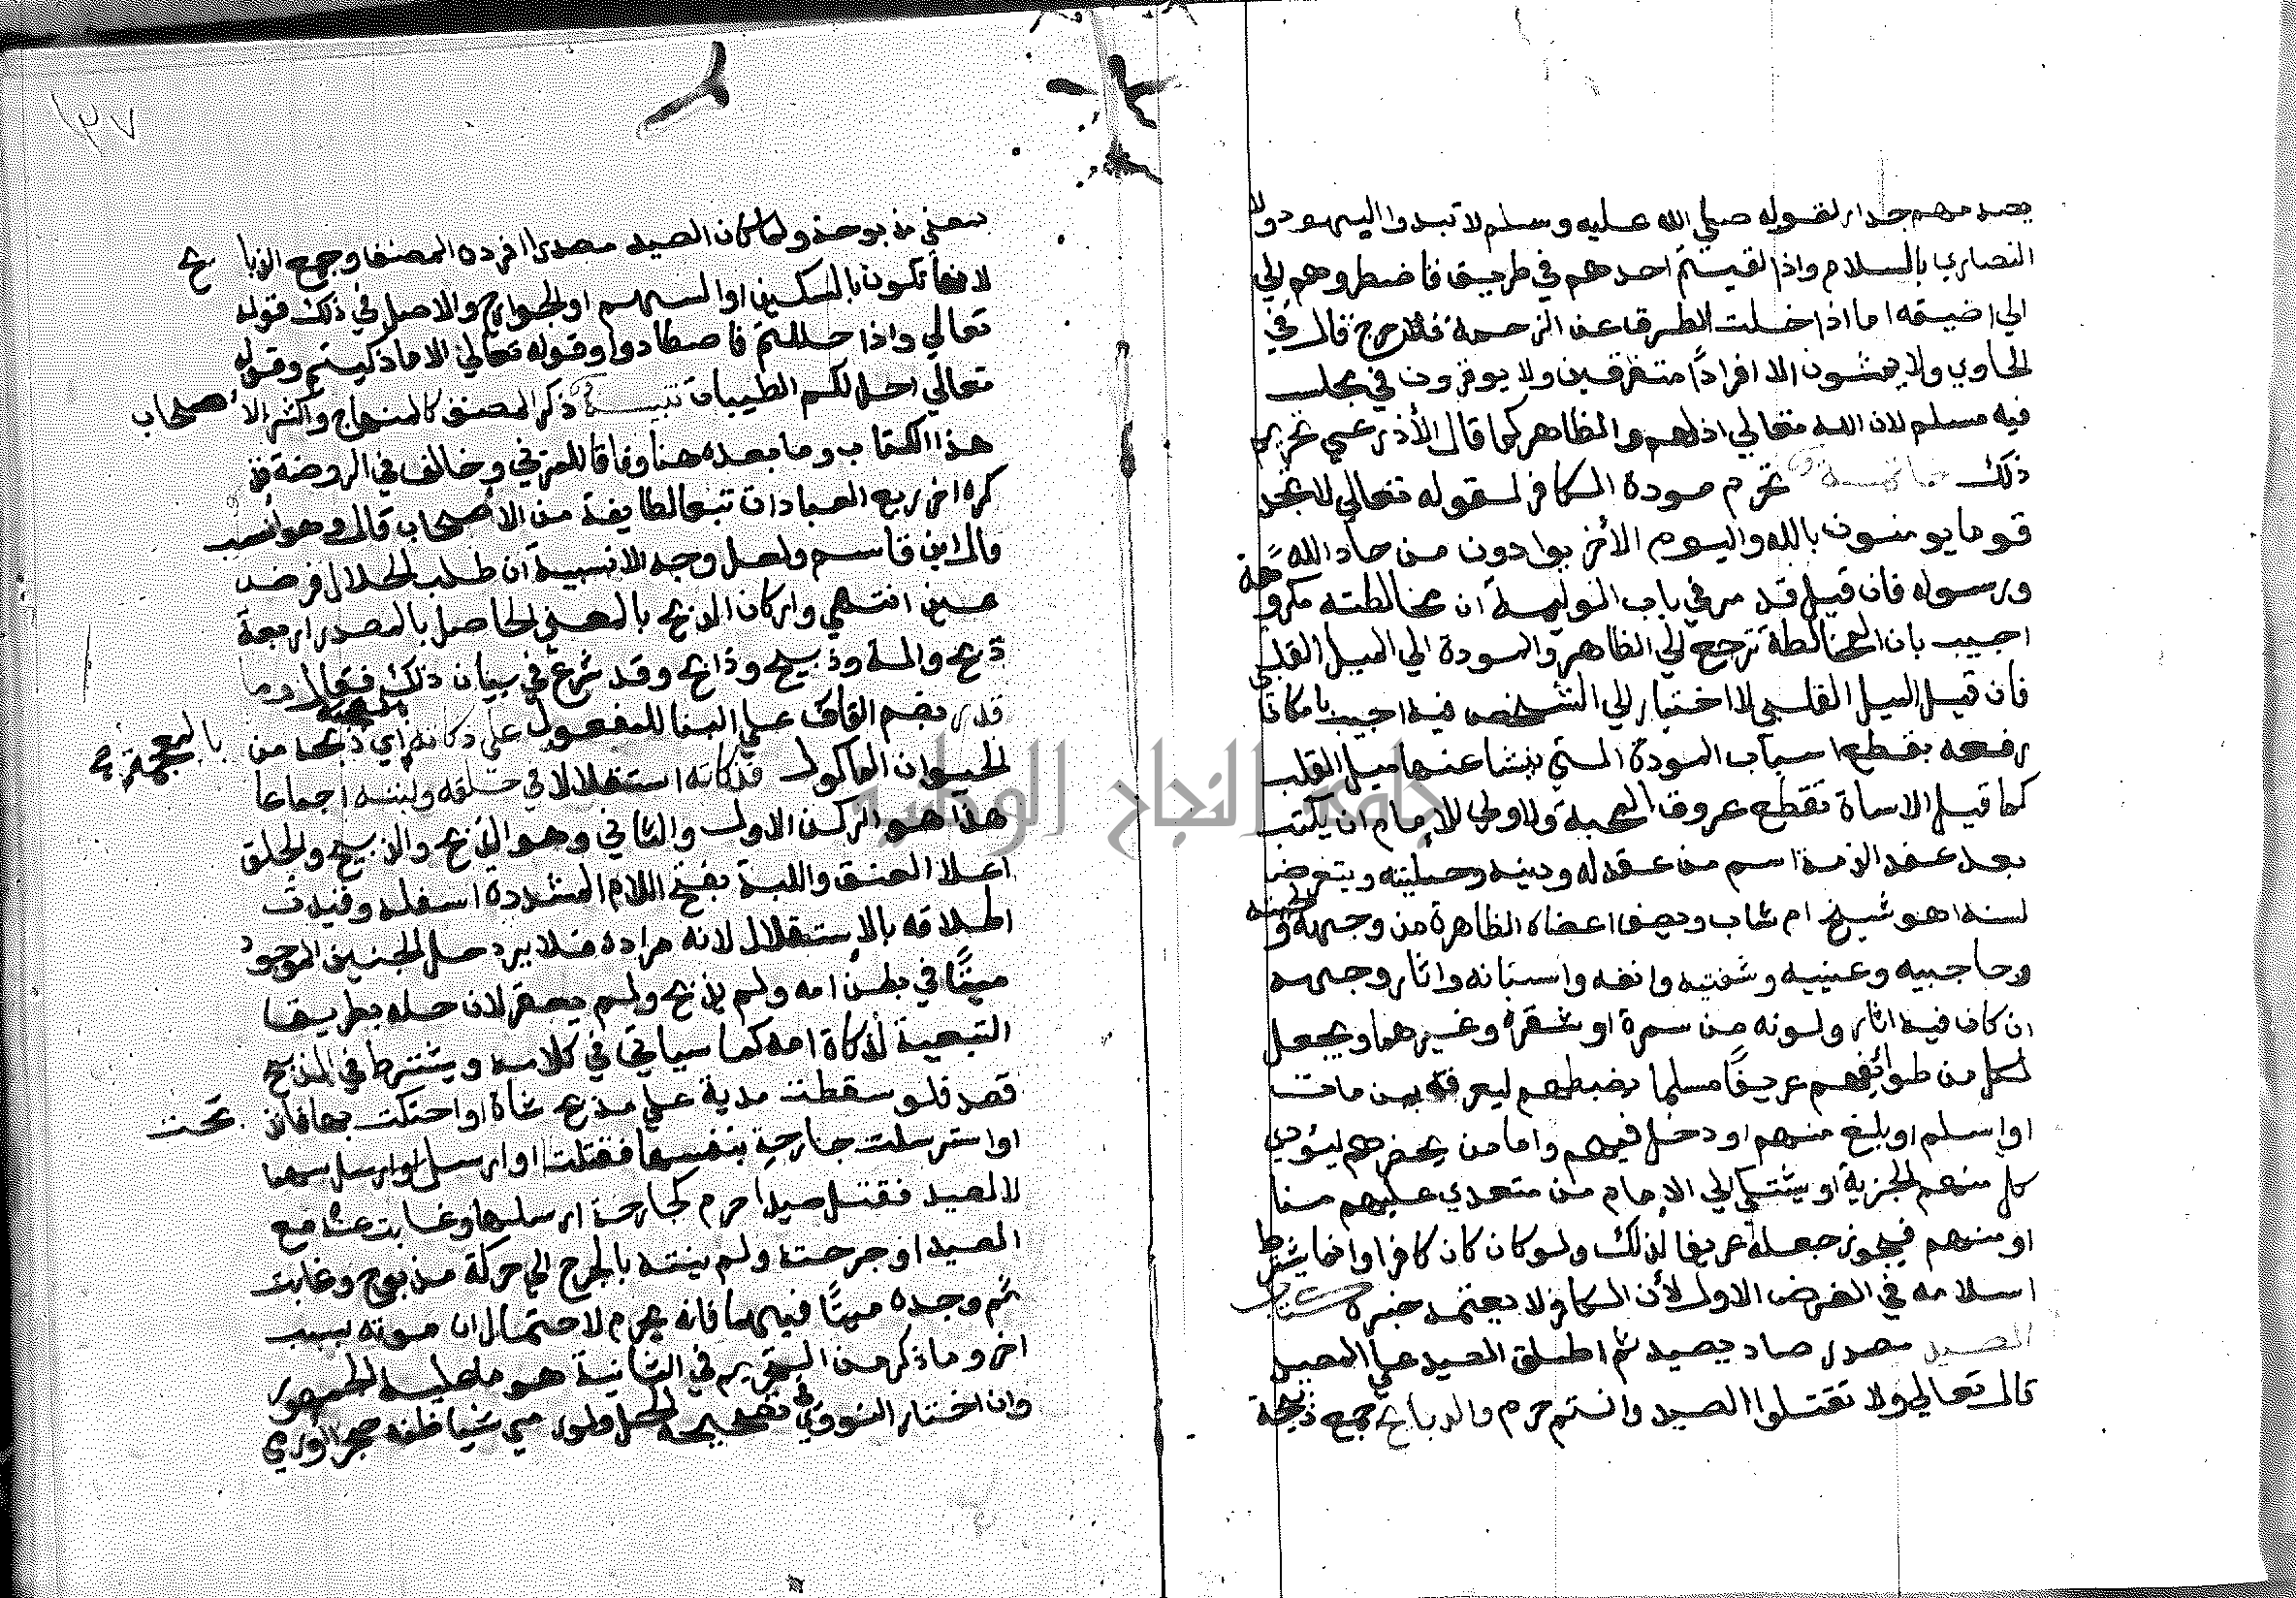 يصدمهم جدار لقوله صلي الله عليه وسلم لا تبدوا اليهود ولا
النصاري بالسلام واذا لقيتم احدهم في طريق فاضطروهم الي
الي اضيقه اما اذا خلت الطرقات عن الزحمة فلا حرج قال في
الحاوي ولا يمشون الا افرادًا متفرقين ولا يوقرون في مجلس
فيه مسلم لان الله تعالي اذلهم والظاهر كما قال الأذرعي تحريم
ذلك خاتمة تحرم مودة الكافر لقوله تعالي لا تجد
قوما يومنون بالله واليوم الأخر يوادون من حاد الله
ورسوله فان قيل قد مر في باب الوليمة ان مخالطته مكروهة
اجيب بان المخالطة ترجع الي الظاهر والمودة الي الميل القلبي
فان قيل الميل القلبي لا اختيار الي الشخص فيه اجيب بامكان
رفعه بقطع اسباب المودة التي ينشا عنها ميل القلب
كما قيل الاساة تقطع عروق المحبة والاولي للامام ان يكتب
بعد عقد الذمة اسم من عقد له ودينه وحليته ويتعرض
لسنه اهو شيخ ام شاب ويصف اعضاه الظاهرة من وجهه ولحيته
وحاجبيه وعينيه وشفتيه وانفه واسنانه واثار وجهه
ان كان فيه اثار ولونه من سمرة او شقرة وغيرهما ويجعل
لكل من طوائفهم عريفًا مسلما يضبطهم ليعرفه بمن مات
او اسلم او بلغ منهم او دخل فيهم واما من يحضرهم ليؤدي
كل منهم الجزية او يشتكي الي الامام من متعدي عليهم منا
او منهم فيجوز جعله عريفا لذلك ولو كان كافرا وانما يشترط
اسلامه في الغرض الاول لأن الكافر لا يعتمد خبره
الصيد مصدر صاد يصيد ثم اطلق الصيد علي المصيد
قال تعالي ولا تقتلوا الصيد وانتم حرم والدبايح جمع ذبيحة
١٣٧
بمعني مذبوحة ولما كان الصيد مصدرا افرده المصنف وجمع الذبايح
لانها تكون بالسكين او السهم او الجوارح والاصل في ذلك قوله
تعالي واذا حللتم فاصطادوا وقوله تعالي الا ما ذكيتم وقوله
تعالي احل لكم الطيبات تنبيه ذكر المصنف كالمنهاج واكثر الاصحاب
هذا الكتاب وما بعده هنا وفاقا للمزني وخالف في الروضة فذ
كره اخر ربع العبادات تبعا لطايفة من الأصحاب قال وهو انسب
قال ابن قاسم ولعل وجه الانسبية ان طلب الحلال فرض
عين انتهي واركان الذبح بالمعني الحاصل بالمصدر اربعة
ذبح والة وذبيح وذابح وقد شرع في بيان ذلك فقال وما
قدر بضم القاف علي البنا للمفعول علي ذكاته بالمعجمة اي ذبحه من
الحيوان الماكول فذكاته استقلالا في حلقه ولبته اجماعا
هذا هو الركن الاول والثاني وهو الذبح والذبيح والحلق
اعلا العنق واللبة بفتح اللام المشددة اسفله وقيدت
اطلاقه بالاستقلال لانه مراده فلا يرد حل الجنين الموجود
ميتًا في بطن امه ولم يذبح ولم يعقر لان حله بطريق
التبعية لذكاة امه كما سياتي في كلامه ويشترط في الذبح
قصد فلو سقطت مدية علي مذبح شاة او احتكت بها فانذبحت
او استرسلت جارحة بنفسها فقتلت او ارسل سهما
لا لصيد فقتل صيدا حرم كجارحة ارسلها وغابت عنه مع
الصيد او جرحته ولم ينته بالجرح الي حركة مذبوح وغابت
ثم وجده ميتًا فيهما فانه يحرم لاحتمال ان موته بسبب
اخر وما ذكر من التحريم في الثانية هو ما عليه الجمهور
وان اختار النووي في تصحيحه الحل ولو رمي شيا ظنه حجرا